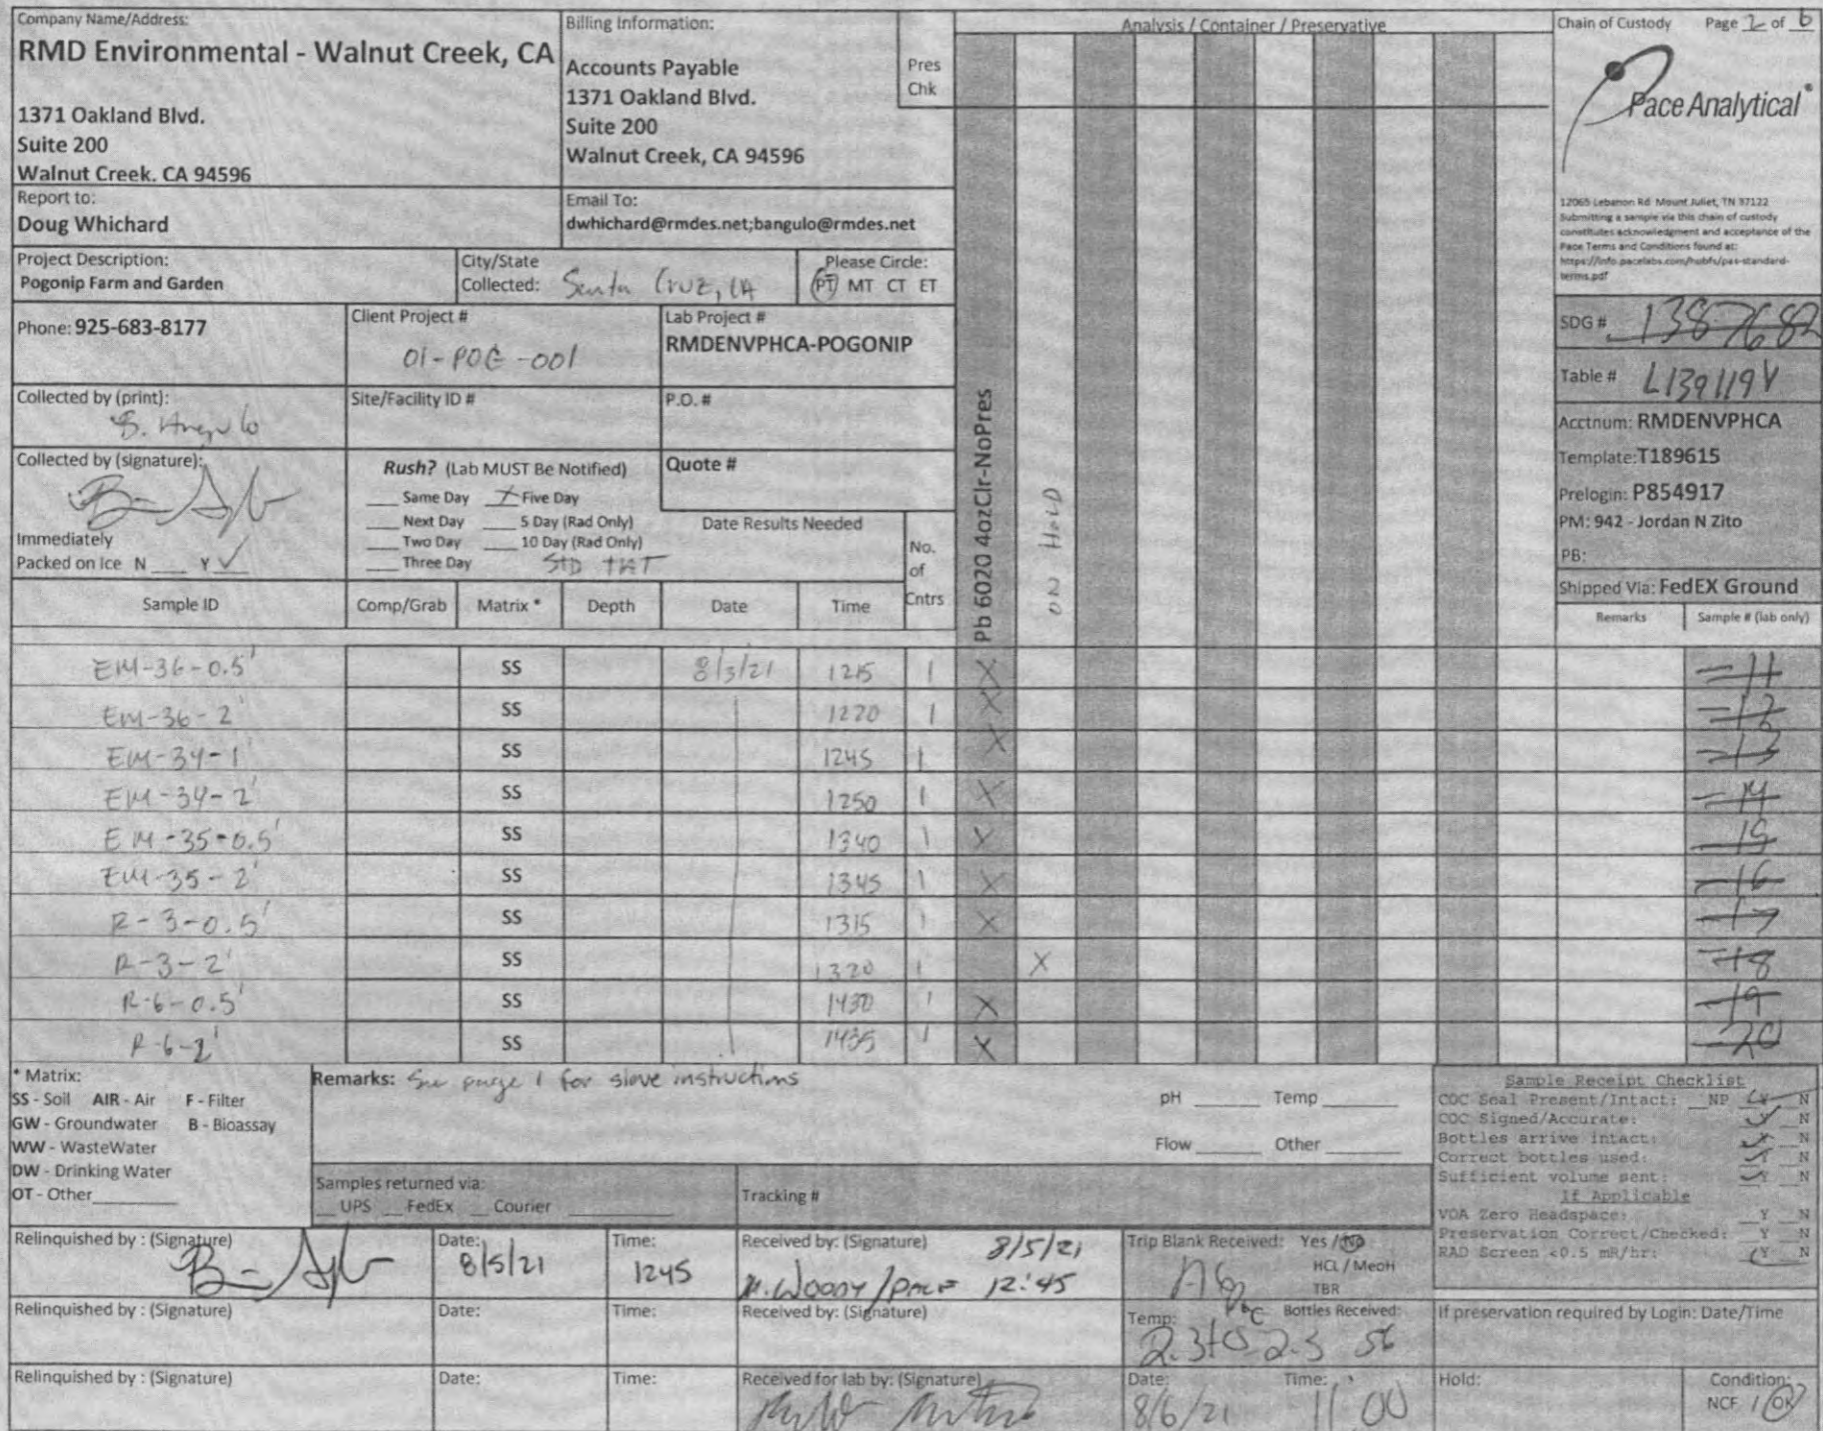 Company Name/Address:
RMD Environmental - Walnut Creek, CA
1371 Oakland Blvd.
Suite 200
Walnut Creek. CA 94596
Billing Information:
Accounts Payable
1371 Oakland Blvd.
Suite 200
Walnut Creek, CA 94596
Pres
Chk
Analysis / Container / Preservative
Chain of Custody Page 2 of 6
Pace Analytical
12065 Lebanon Rd Mount Juliet, TN 37122
Submitting a sample via this chain of custody
constitutes acknowledgment and acceptance of the
Pace Terms and Conditions found at:
https://info.pacelabs.com/hubfs/pas-standard-
terms.pdf
Report to:
Doug Whichard
Email To:
dwhichard@rmdes.net;bangulo@rmdes.net
Project Description:
Pogonip Farm and Garden
City/State
Collected: Santa Cruz, CA
Please Circle:
PT MT CT ET
Phone: 925-683-8177
Client Project #
01-POG-001
Lab Project #
RMDENVPHCA-POGONIP
SDG # 1387682
Table # L1391194
Collected by (print):
B. Angulo
Site/Facility ID #
P.O. #
Acctnum: RMDENVPHCA
Template:T189615
Prelogin: P854917
PM: 942 - Jordan N Zito
PB:
Shipped Via: FedEX Ground
Remarks Sample # (lab only)
Collected by (signature):
Immediately
Packed on Ice N ___ Y ✓
Rush? (Lab MUST Be Notified)
___ Same Day X Five Day
___ Next Day ___ 5 Day (Rad Only)
___ Two Day ___ 10 Day (Rad Only)
___ Three Day STD TAT
Quote #
Date Results Needed
No.
of
Cntrs
Pb 6020 4ozClr-NoPres
ON HOLD
Sample ID Comp/Grab Matrix * Depth Date Time
EM-36-0.5' SS 8/3/21 1215 1 X -11
EM-36-2' SS 1220 1 X -12
EM-34-1' SS 1245 1 X -13
EM-34-2' SS 1250 1 X -14
EM-35-0.5' SS 1340 1 X -15
EM-35-2' SS 1345 1 X -16
R-3-0.5' SS 1315 1 X -17
R-3-2' SS 1320 1 X -18
R-6-0.5' SS 1430 1 X -19
R-6-2' SS 1435 1 X -20
* Matrix:
SS - Soil AIR - Air F - Filter
GW - Groundwater B - Bioassay
WW - WasteWater
DW - Drinking Water
OT - Other
Remarks: See page 1 for sieve instructions
pH ___ Temp ___
Flow ___ Other ___
Samples returned via:
__ UPS __ FedEx __ Courier
Tracking #
Sample Receipt Checklist
COC Seal Present/Intact: __NP Y N
COC Signed/Accurate: Y N
Bottles arrive intact: Y N
Correct bottles used: Y N
Sufficient volume sent: Y N
If Applicable
VOA Zero Headspace: Y N
Preservation Correct/Checked: Y N
RAD Screen <0.5 mR/hr: Y N
Relinquished by : (Signature)
Date:
8/5/21
Time:
1245
Received by: (Signature) 8/5/21
M. Woody / Pace 12:45
Trip Blank Received: Yes / No
HCL / MeoH
TBR
Relinquished by : (Signature)
Date:
Time:
Received by: (Signature)
Temp: °C Bottles Received:
2.3+0=2.3 56
If preservation required by Login: Date/Time
Relinquished by : (Signature)
Date:
Time:
Received for lab by: (Signature)
Date:
8/6/21
Time:
11:00
Hold:
Condition:
NCF / OK